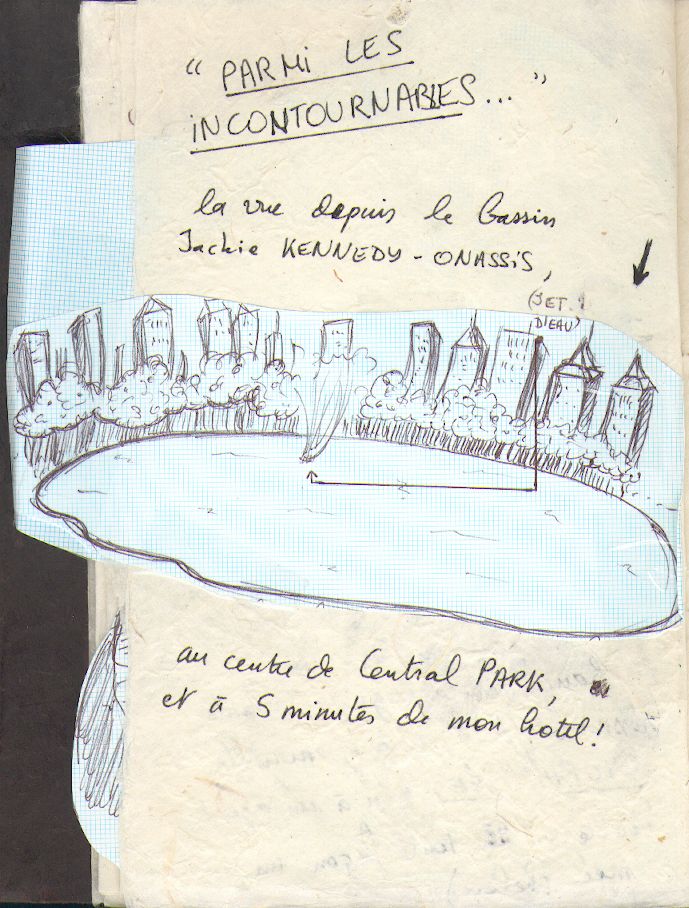 “ PARMI LES
INCONTOURNABLES... ”
la vue depuis le bassin
Jackie KENNEDY - ONASSIS,
(JET
D'EAU)
au centre de Central PARK,
et à 5 minutes de mon hôtel !